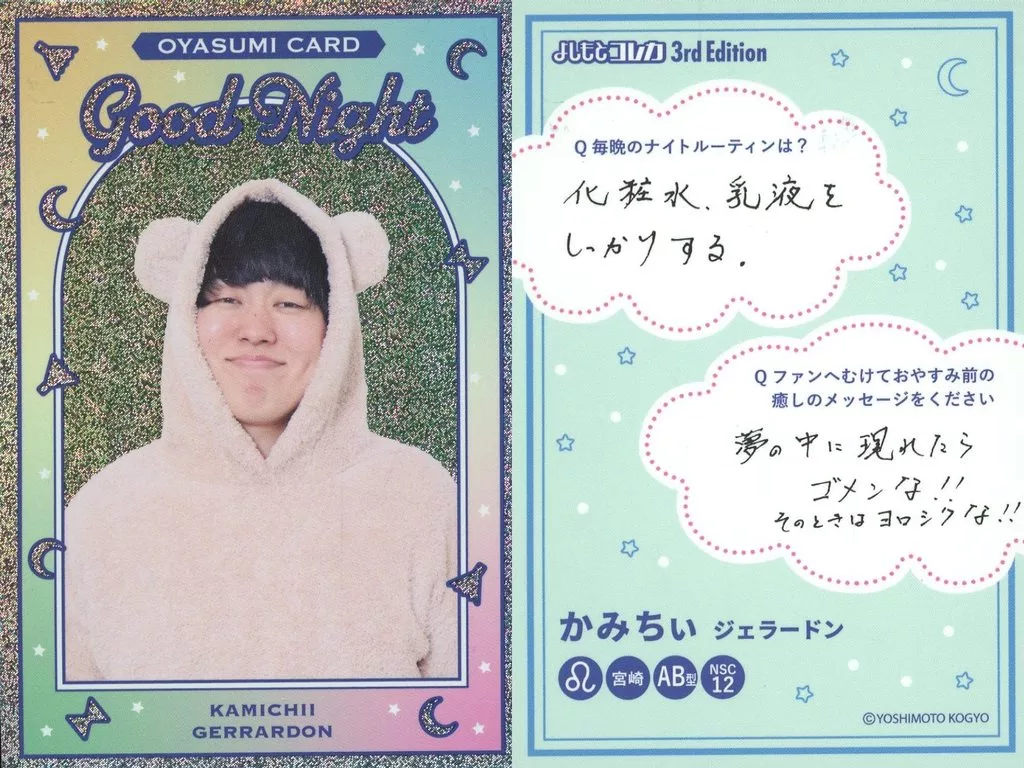 OYASUMI CARD
Good Night
KAMICHII
GERRARDON
よしもとコレカ 3rd Edition
Q 毎晩のナイトルーティンは？
化粧水、乳液を
しっかりする.
Q ファンへむけておやすみ前の
癒しのメッセージをください
夢の中に現れたら
ゴメンな!!
そのときはヨロシクな!!
かみちぃ ジェラードン
♌ 宮崎 AB型 NSC 12
©YOSHIMOTO KOGYO